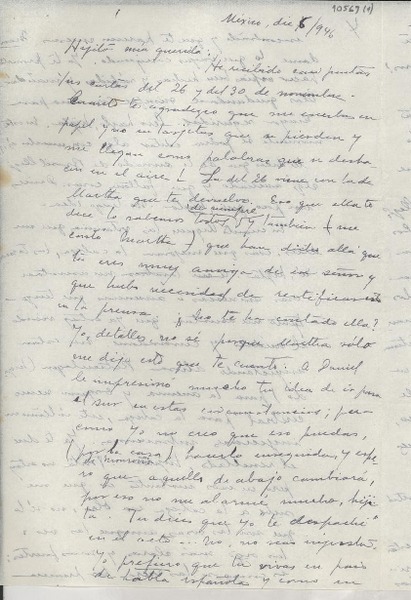 10569 (1)
México, dic 6/946
Hijita mía querida: He recibido con juntas
tus cartas del 26 y del 30 de noviembre.
Cuánto te agradezco que me escribas en
papel y no en tarjetas que se pierden y
me llegan como palabras que se desha
cen en el aire! La del 26 viene con la de
Martha que te devuelvo. Eso que ella te
dice lo sabemos todos de siempre y también me
contó Martha que han dicho allá que
tú eres muy amiga de un señor y
que hubo necesidad de rectificar
en la prensa ¿No te ha contado ella?
Yo, detalles no sé porque Martha sólo
me dijo esto que te cuento. A Daniel
le impresionó mucho tu idea de ir para
el sur en estas circunstancias; pero
como yo no creo que eso puedas,
(por la casa) hacerlo enseguida, y espe
ro que aquello de abajo cambiará,
por eso no me alarmé mucho, hiji
ta. Tú dices que yo te despaché
en el acto. No, no seas injusta.
Yo prefiero que tú vivas en país
de habla española y como un